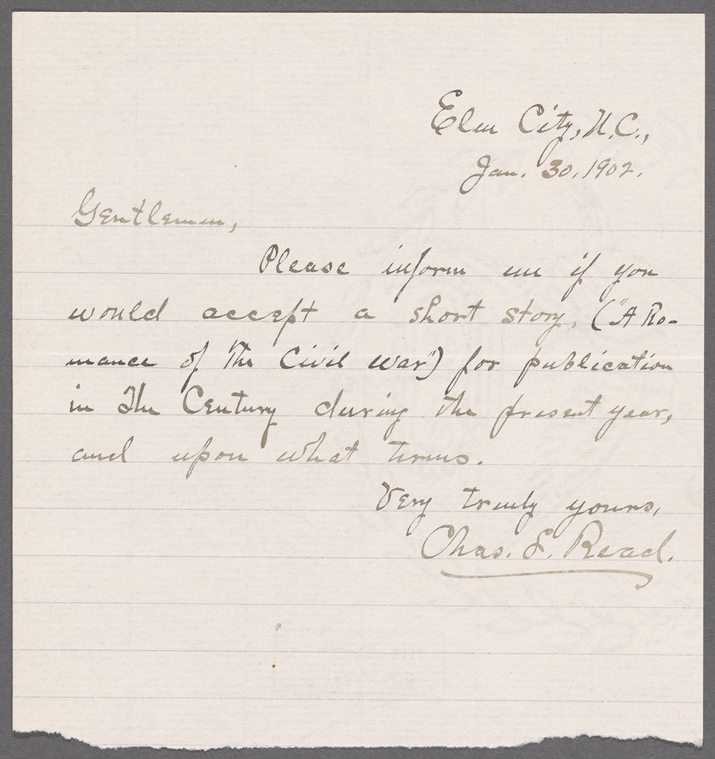 Elm City, N.C.,
Jan. 30, 1902.
Gentlemen,
Please inform me if you
would accept a short story, ("A Ro-
mance of the Civil War") for publication
in The Century during the present year,
and upon what terms.
Very truly yours,
Chas. E. Read.